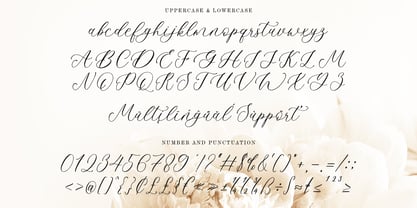 UPPERCASE & LOWERCASE
abcdefghijklmnopqrstuvwxyz
ABCDEFGHIJKLM
NOPQRSTUVWXYZ
Multilingual Support
NUMBER AND PUNCTUATION
0123456789